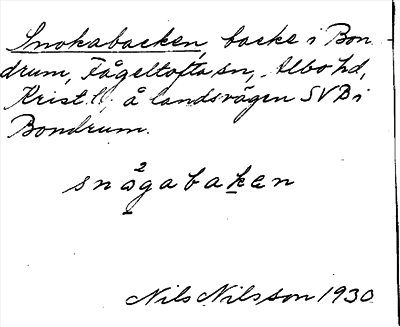 Snokabacken, backe i Bon-
drum, Fågeltofta sn, Albo hd,
Krist. l, å landsvägen SV B i
Bondrum.
2
snågabaken
Nils Nilsson 1930